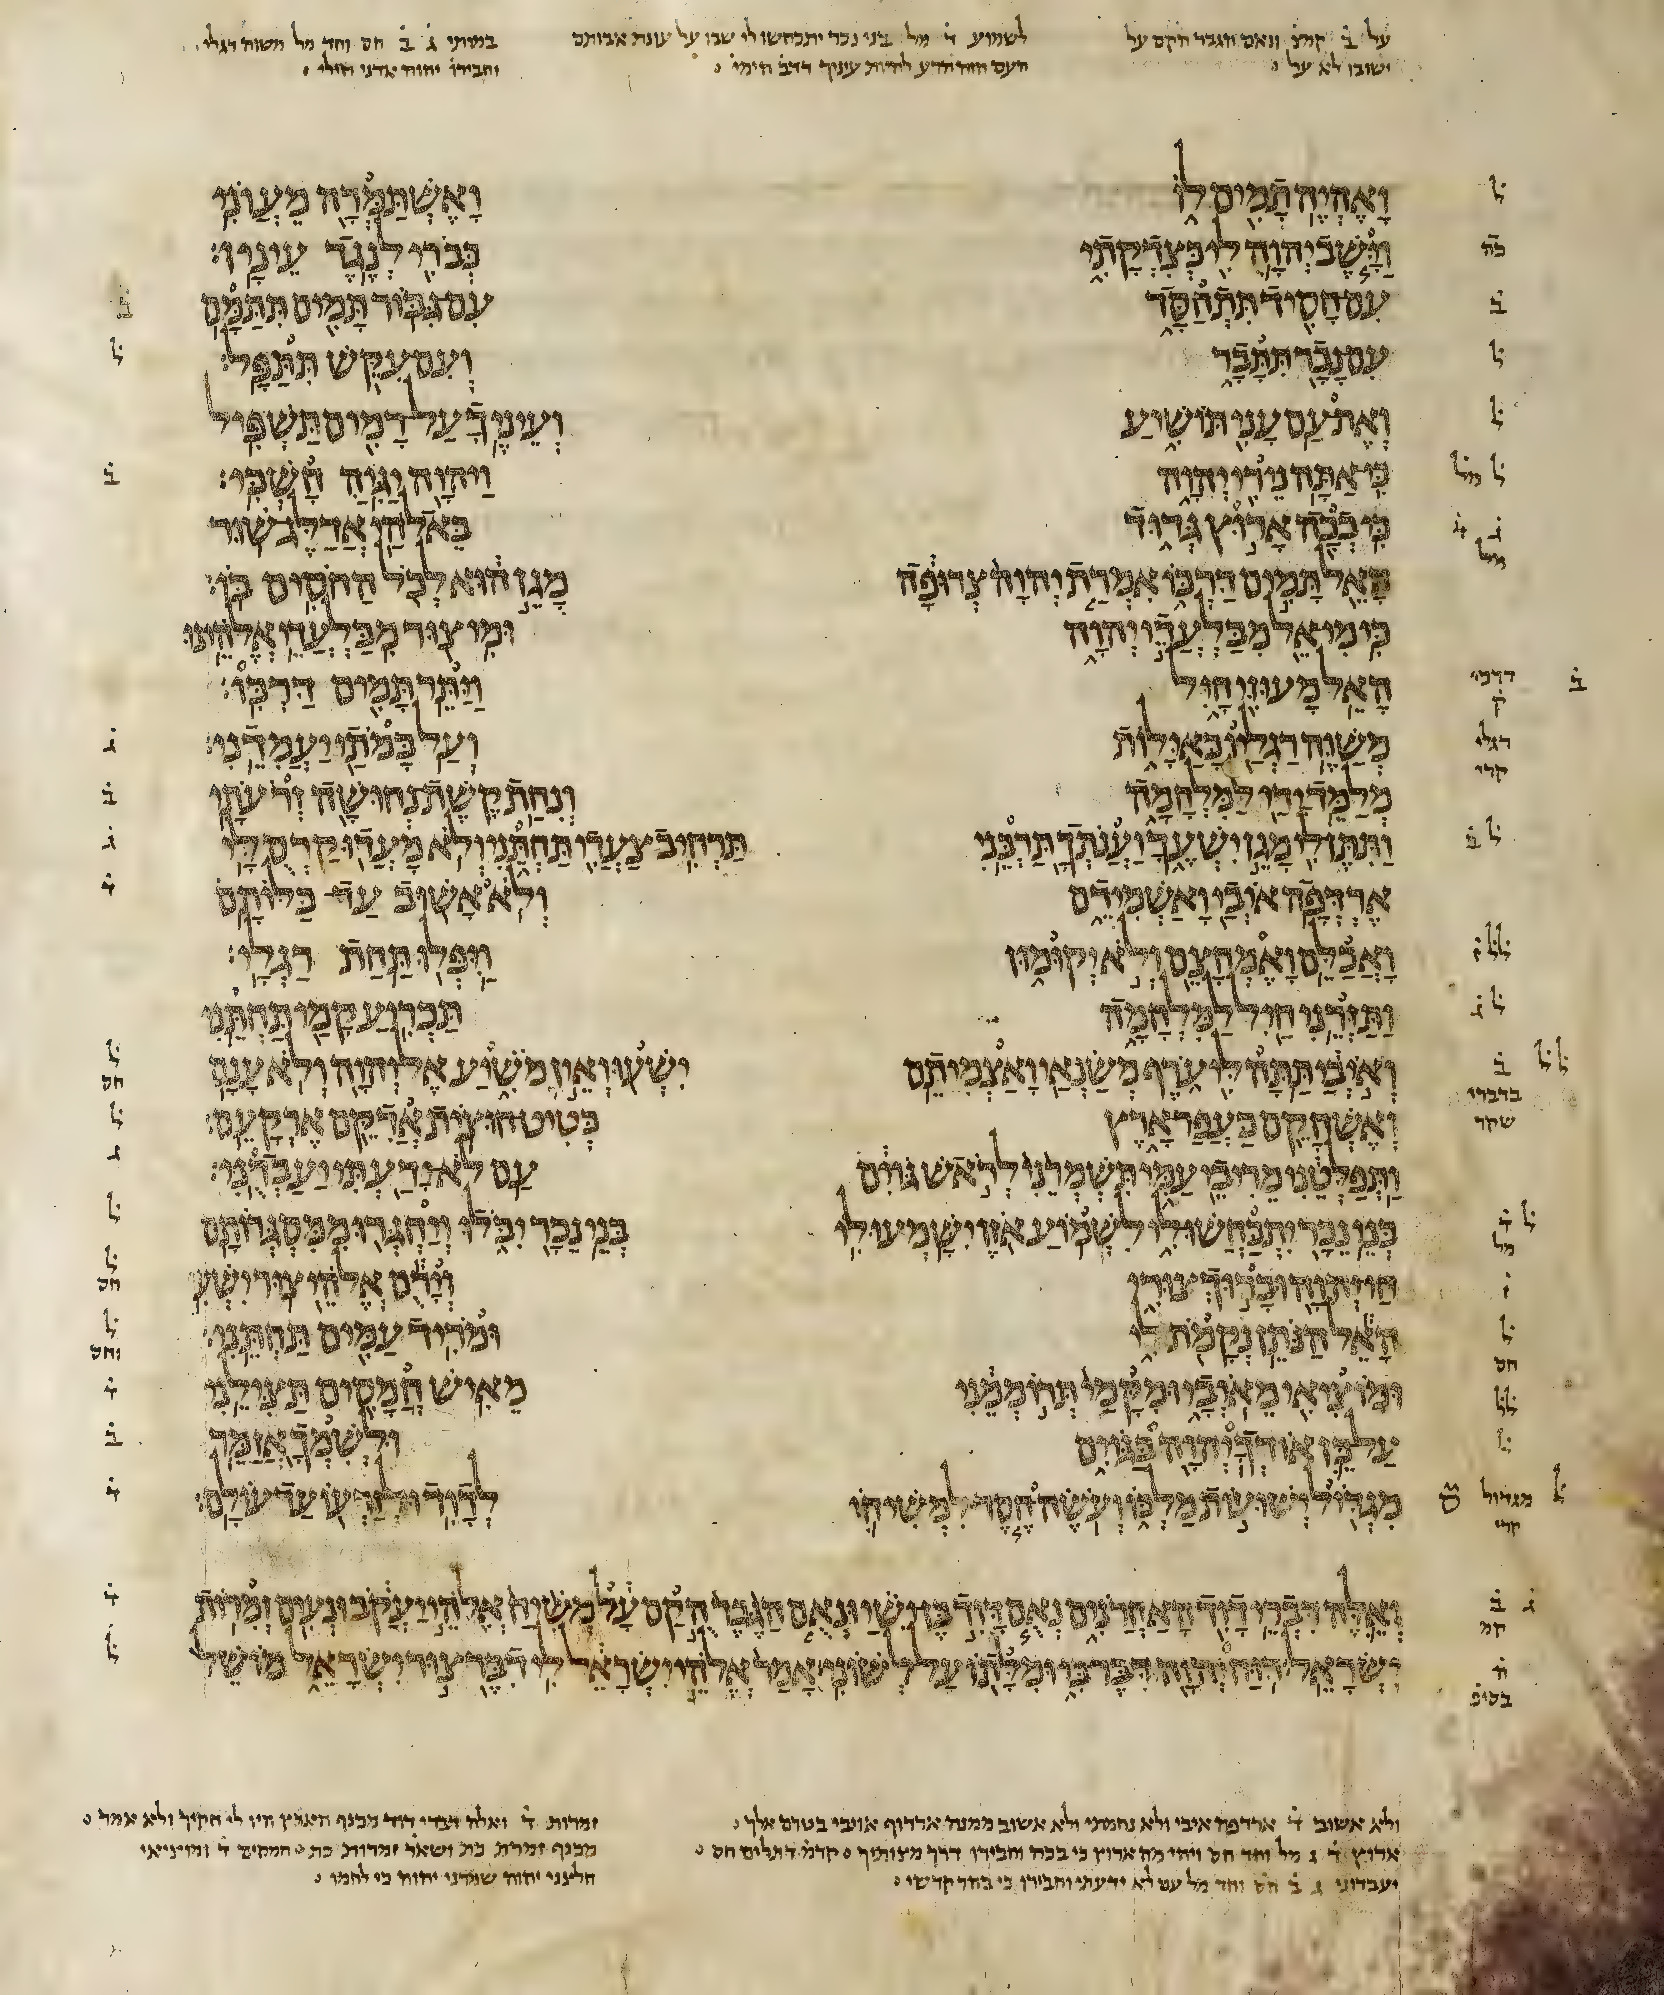 על ב̇ קמצ ונאם הגבר הקם על
ישובו לא על
לשמוע ד̇ מל בני נכר יתכחשו לי שבו על עונת אבותם
העם הזה תדע להיות עיניך דדב הימי
במותי ג̇ ב̇ חס וחד מל משוה רגלי
וחבירו יהוה אדני חילי
וָאֶהְיֶה תָמִים לוֹ וָאֶשְׁתַּמְּרָה מֵעֲוֺנִי׃
וַיָּשֶׁב יְהוָה לִי כְּצִדְקָתִי כְּבֹרִי לְנֶגֶד עֵינָיו׃
עִם חָסִיד תִּתְחַסָּד עִם גִּבּוֹר תָּמִים תִּתַּמָּם׃
עִם נָבָר תִּתָּבָר וְעִם עִקֵּשׁ תִּתַּפָּל׃
וְאֶת עַם עָנִי תּוֹשִׁיעַ וְעֵינֶיךָ עַל רָמִים תַּשְׁפִּיל׃
כִּי אַתָּה נֵירִי יְהוָה וַיהוָה יַגִּיהַּ חָשְׁכִּי׃
כִּי בְכָה אָרוּץ גְּדוּד בֵּאלֹהַי אֲדַלֶּג שׁוּר׃
הָאֵל תָּמִים דַּרְכּוֹ אִמְרַת יְהוָה צְרוּפָה מָגֵן הוּא לְכֹל הַחֹסִים בּוֹ׃
כִּי מִי אֵל מִבַּלְעֲדֵי יְהוָה וּמִי צוּר מִבַּלְעֲדֵי אֱלֹהֵינוּ׃
הָאֵל מָעוּזִּי חָיִל וַיַּתֵּר תָּמִים דַּרְכּוֹ׃
מְשַׁוֶּה רַגְלַיו כָּאַיָּלוֹת וְעַל בָּמֹתַי יַעֲמִדֵנִי׃
מְלַמֵּד יָדַי לַמִּלְחָמָה וְנִחַת קֶשֶׁת נְחוּשָׁה זְרֹעֹתָי׃
וַתִּתֶּן לִי מָגֵן יִשְׁעֶךָ וַעֲנֹתְךָ תַּרְבֵּנִי תַּרְחִיב צַעֲדִי תַּחְתֵּנִי וְלֹא מָעֲדוּ קַרְסֻלָּי׃
אֶרְדְּפָה אֹיְבַי וָאַשְׁמִידֵם וְלֹא אָשׁוּב עַד כַּלּוֹתָם׃
וָאֲכַלֵּם וָאֶמְחָצֵם וְלֹא יְקוּמוּן וַיִּפְּלוּ תַּחַת רַגְלָי׃
וַתַּזְרֵנִי חַיִל לַמִּלְחָמָה תַּכְרִיעַ קָמַי תַּחְתֵּנִי׃
וְאֹיְבַי תַּתָּה לִּי עֹרֶף מְשַׂנְאַי וָאַצְמִיתֵם יִשְׁעוּ וְאֵין מֹשִׁיעַ אֶל יְהוָה וְלֹא עָנָם׃
וְאֶשְׁחָקֵם כַּעֲפַר אָרֶץ כְּטִיט חוּצוֹת אֲדִקֵּם אֶרְקָעֵם׃
וַתְּפַלְּטֵנִי מֵרִיבֵי עַמִּי תִּשְׁמְרֵנִי לְרֹאשׁ גּוֹיִם עַם לֹא יָדַעְתִּי יַעַבְדֻנִי׃
בְּנֵי נֵכָר יִתְכַּחֲשׁוּ לִי לִשְׁמוֹעַ אֹזֶן יִשָּׁמְעוּ לִי בְּנֵי נֵכָר יִבֹּלוּ וְיַחְגְּרוּ מִמִּסְגְּרוֹתָם׃
חַי יְהוָה וּבָרוּךְ צוּרִי וְיָרֻם אֱלֹהֵי צוּר יִשְׁעִי׃
הָאֵל הַנֹּתֵן נְקָמֹת לִי וּמֹרִיד עַמִּים תַּחְתֵּנִי׃
וּמוֹצִיאִי מֵאֹיְבָי וּמִקָּמַי תְּרוֹמְמֵנִי מֵאִישׁ חֲמָסִים תַּצִּילֵנִי׃
עַל כֵּן אוֹדְךָ יְהוָה בַּגּוֹיִם וּלְשִׁמְךָ אֲזַמֵּר׃
מִגְדִּיל יְשׁוּעוֹת מַלְכּוֹ וְעֹשֶׂה חֶסֶד לִמְשִׁיחוֹ לְדָוִד וּלְזַרְעוֹ עַד עוֹלָם׃
וְאֵלֶּה דִּבְרֵי דָוִד הָאַחֲרֹנִים נְאֻם דָּוִד בֶּן יִשַׁי וּנְאֻם הַגֶּבֶר הֻקַם עָל מְשִׁיחַ אֱלֹהֵי יַעֲקֹב וּנְעִים זְמִרוֹת
יִשְׂרָאֵל׃ רוּחַ יְהוָה דִּבֶּר בִּי וּמִלָּתוֹ עַל לְשׁוֹנִי׃ אָמַר אֱלֹהֵי יִשְׂרָאֵל לִי דִבֶּר צוּר יִשְׂרָאֵל מוֹשֵׁל
ולא אשוב ד̇ ארדפה איבי ולא נחמתי ולא אשוב ממנה ארדוף אויבי בטרם אלך
ארוץ ד̇ ג מל וחד חס ויהי מה ארוץ כי בכה וחבירו דרך מצותיך קדמ דתלים חס
יעבדוני ג̇ ב̇ חס וחד מל עם לא ידעתי וחבירו כי בהר קדשי
זמרות ד̇ ואלה דברי דוד מכנף הארץ היו לי חקיך ולא אמר
מכנף זמרת כת ושאר זמרות כת חמסים ד̇ ומוציאי
חלצני יהוה שמרני יהוה כי לחמו